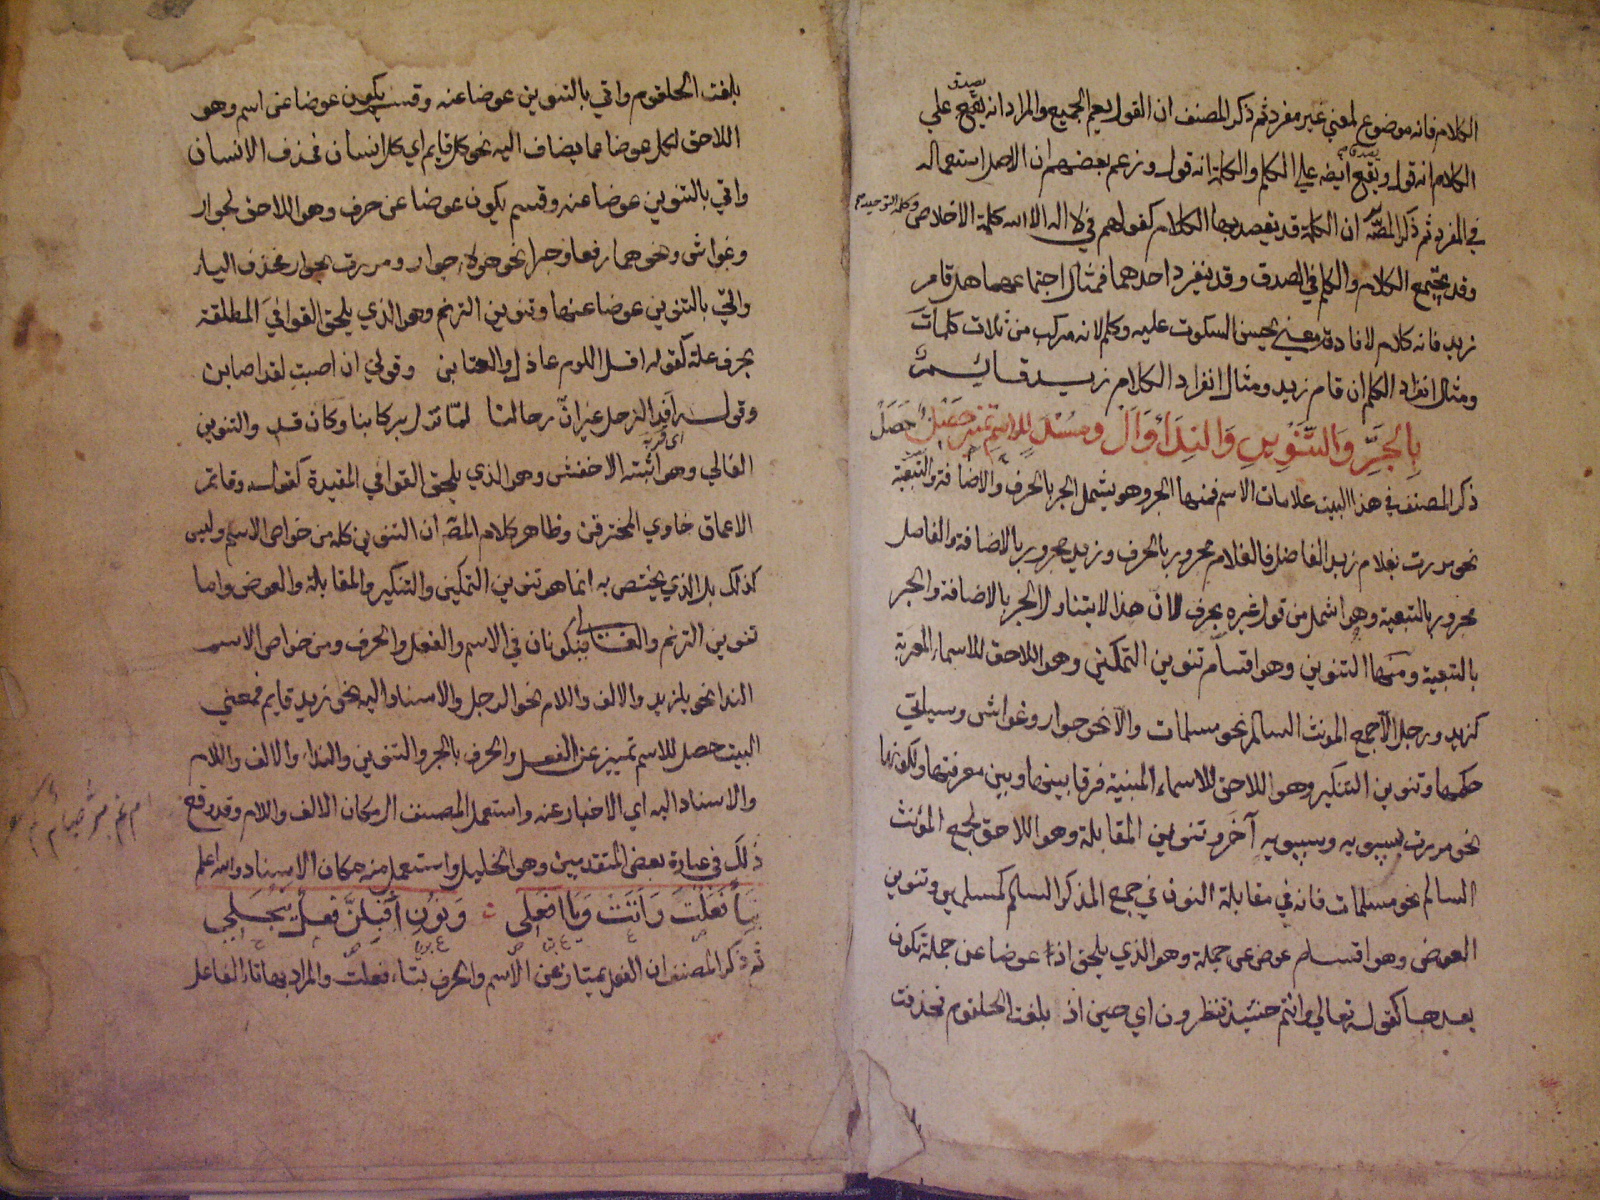 الكلام فانه موضوع لمعني غير مفرد ثم ذكر المصنف ان القول يعم الجميع والمراد انه يقع علي
يصدق
الكلام انه قول ويقع ايضه علي الكلم والكلمة انه قول وزعم بعضهم ان الاصل استعماله
في المفرد ثم ذكر المصّه ان الكلمة قد يقصد بها الكلام كقولهم في لا اله الا الله كلمة الاخلاص
وكلمة التوحيد
وقد يجتمع الكلام والكلم في الصدق وقد ينفرد احدهما فمثال اجتماعهما هل قام
زيد فانه كلام لافادة معني يحسن السكوت عليه وكلم لانه مركب من ثلاث كلمات
ومثال انفراد الكلم ان قام زيد ومثال انفراد الكلام زيد قائم
بِالجَرِّ وَالتَّنْوِينِ وَالنِدَا وَالْ ومُسْنَدٍ لِلاِسْمِ تَمْيِيزٌ حَصَلْ
حَصَلْ
ذكر المصنف في هذا البيت علامات الاسم فمنها الجر وهو يشمل الجر بالحرف والاضافة والتبعية
نحو مررت بغلام زيد الفاضل فالغلام مجرور بالحرف وزيد مجرور بالاضافة والفاضل
مجرور بالتبعية وهو اشمل من قول غيره بحرف لان هذا لا يتناول الجر بالاضافة والجر
بالتبعية ومنها التنوين وهو اقسام تنوين التمكين وهو اللاحق للاسماء المعربة
كزيد ورجل الا جمع المونث السالم نحو مسلمات والا نحو جوار وغواش وسياتي
حكمها وتنوين التنكير وهو اللاحق للاسماء المبنية فرقا بين معرفتها ونكرتها
نحو مررت بسيبويه وسيبويه آخر وتنوين المقابلة وهو اللاحق لجمع المؤنث
السالم نحو مسلمات فانه في مقابلة النون في جمع المذكر السالم كمسلمين وتنوين
العوض وهو اقسام عوض عن جملة وهو الذي يلحق اذ عوضا عن جملة تكون
بعدها كقوله تعالي وانتم حينئذ تنظرون اي حين اذ بلغت الحلقوم فحذفت
بلغت الحلقوم واتي بالتنوين عوضا عنه وقسم يكون عوضا عن اسم وهو
اللاحق لكل عوضا مما يضاف اليه نحو كل قايم اي كل انسان فحذف الانسان
واتي بالتنوين عوضا عنه وقسم يكون عوضا عن حرف وهو اللاحق لجوار
وغواش ونحوهما رفعا وجرا نحو هولاء جوار ومررت بجوار فحذف اليا
واتي بالتنوين عوضا عنها وتنوين الترنم وهو الذي يلحق القوافي المطلقة
بحرف علة كقوله اقل اللوم عاذل والعتابن وقولي ان اصبت لقد اصابن
وقوله افد الترحل غير ان رحالنا لمّا تزل بركابنا وكان قدن والتنوين
الغالي وهو اثبته الاخفش وهو الذي يلحق القوافي المقيدة كقوله وقاتم
الاعماق خاوي المخترقن وظاهر كلام المصّه ان التنوين كله من خواص الاسم وليس
كذلك بل الذي يختص به انما هو تنوين التمكين والتنكير والمقابلة والعوض واما
تنوين الترنم والغالي فيكونان في الاسم والفعل والحرف ومن خواص الاسم
الندا نحو يا زيد والالف واللام نحو الرجل والاسناد اليه نحو زيد قايم فمعني
البيت حصل للاسم تمييز عن الفعل والحرف بالجر والتنوين والنداء والالف واللام
والاسناد اليه اي الاخبار عنه واستعمل المصنف ال مكان الالف واللام وقد وقع
ذلك في عبارة بعض المتقدمين وهو الخليل واستعمل مسند مكان الاسناد والله اعلم
بِتَا فَعَلْتَ وَاَتَتْ وَيَا افْعَلِي وَنُونِ اَقْبِلَنَّ فِعْلٌ يَنْجَلِي
ثم ذكر المصنف ان الفعل يمتاز عن الاسم والحرف بتاء فعلت والمراد بها تاء الفاعل